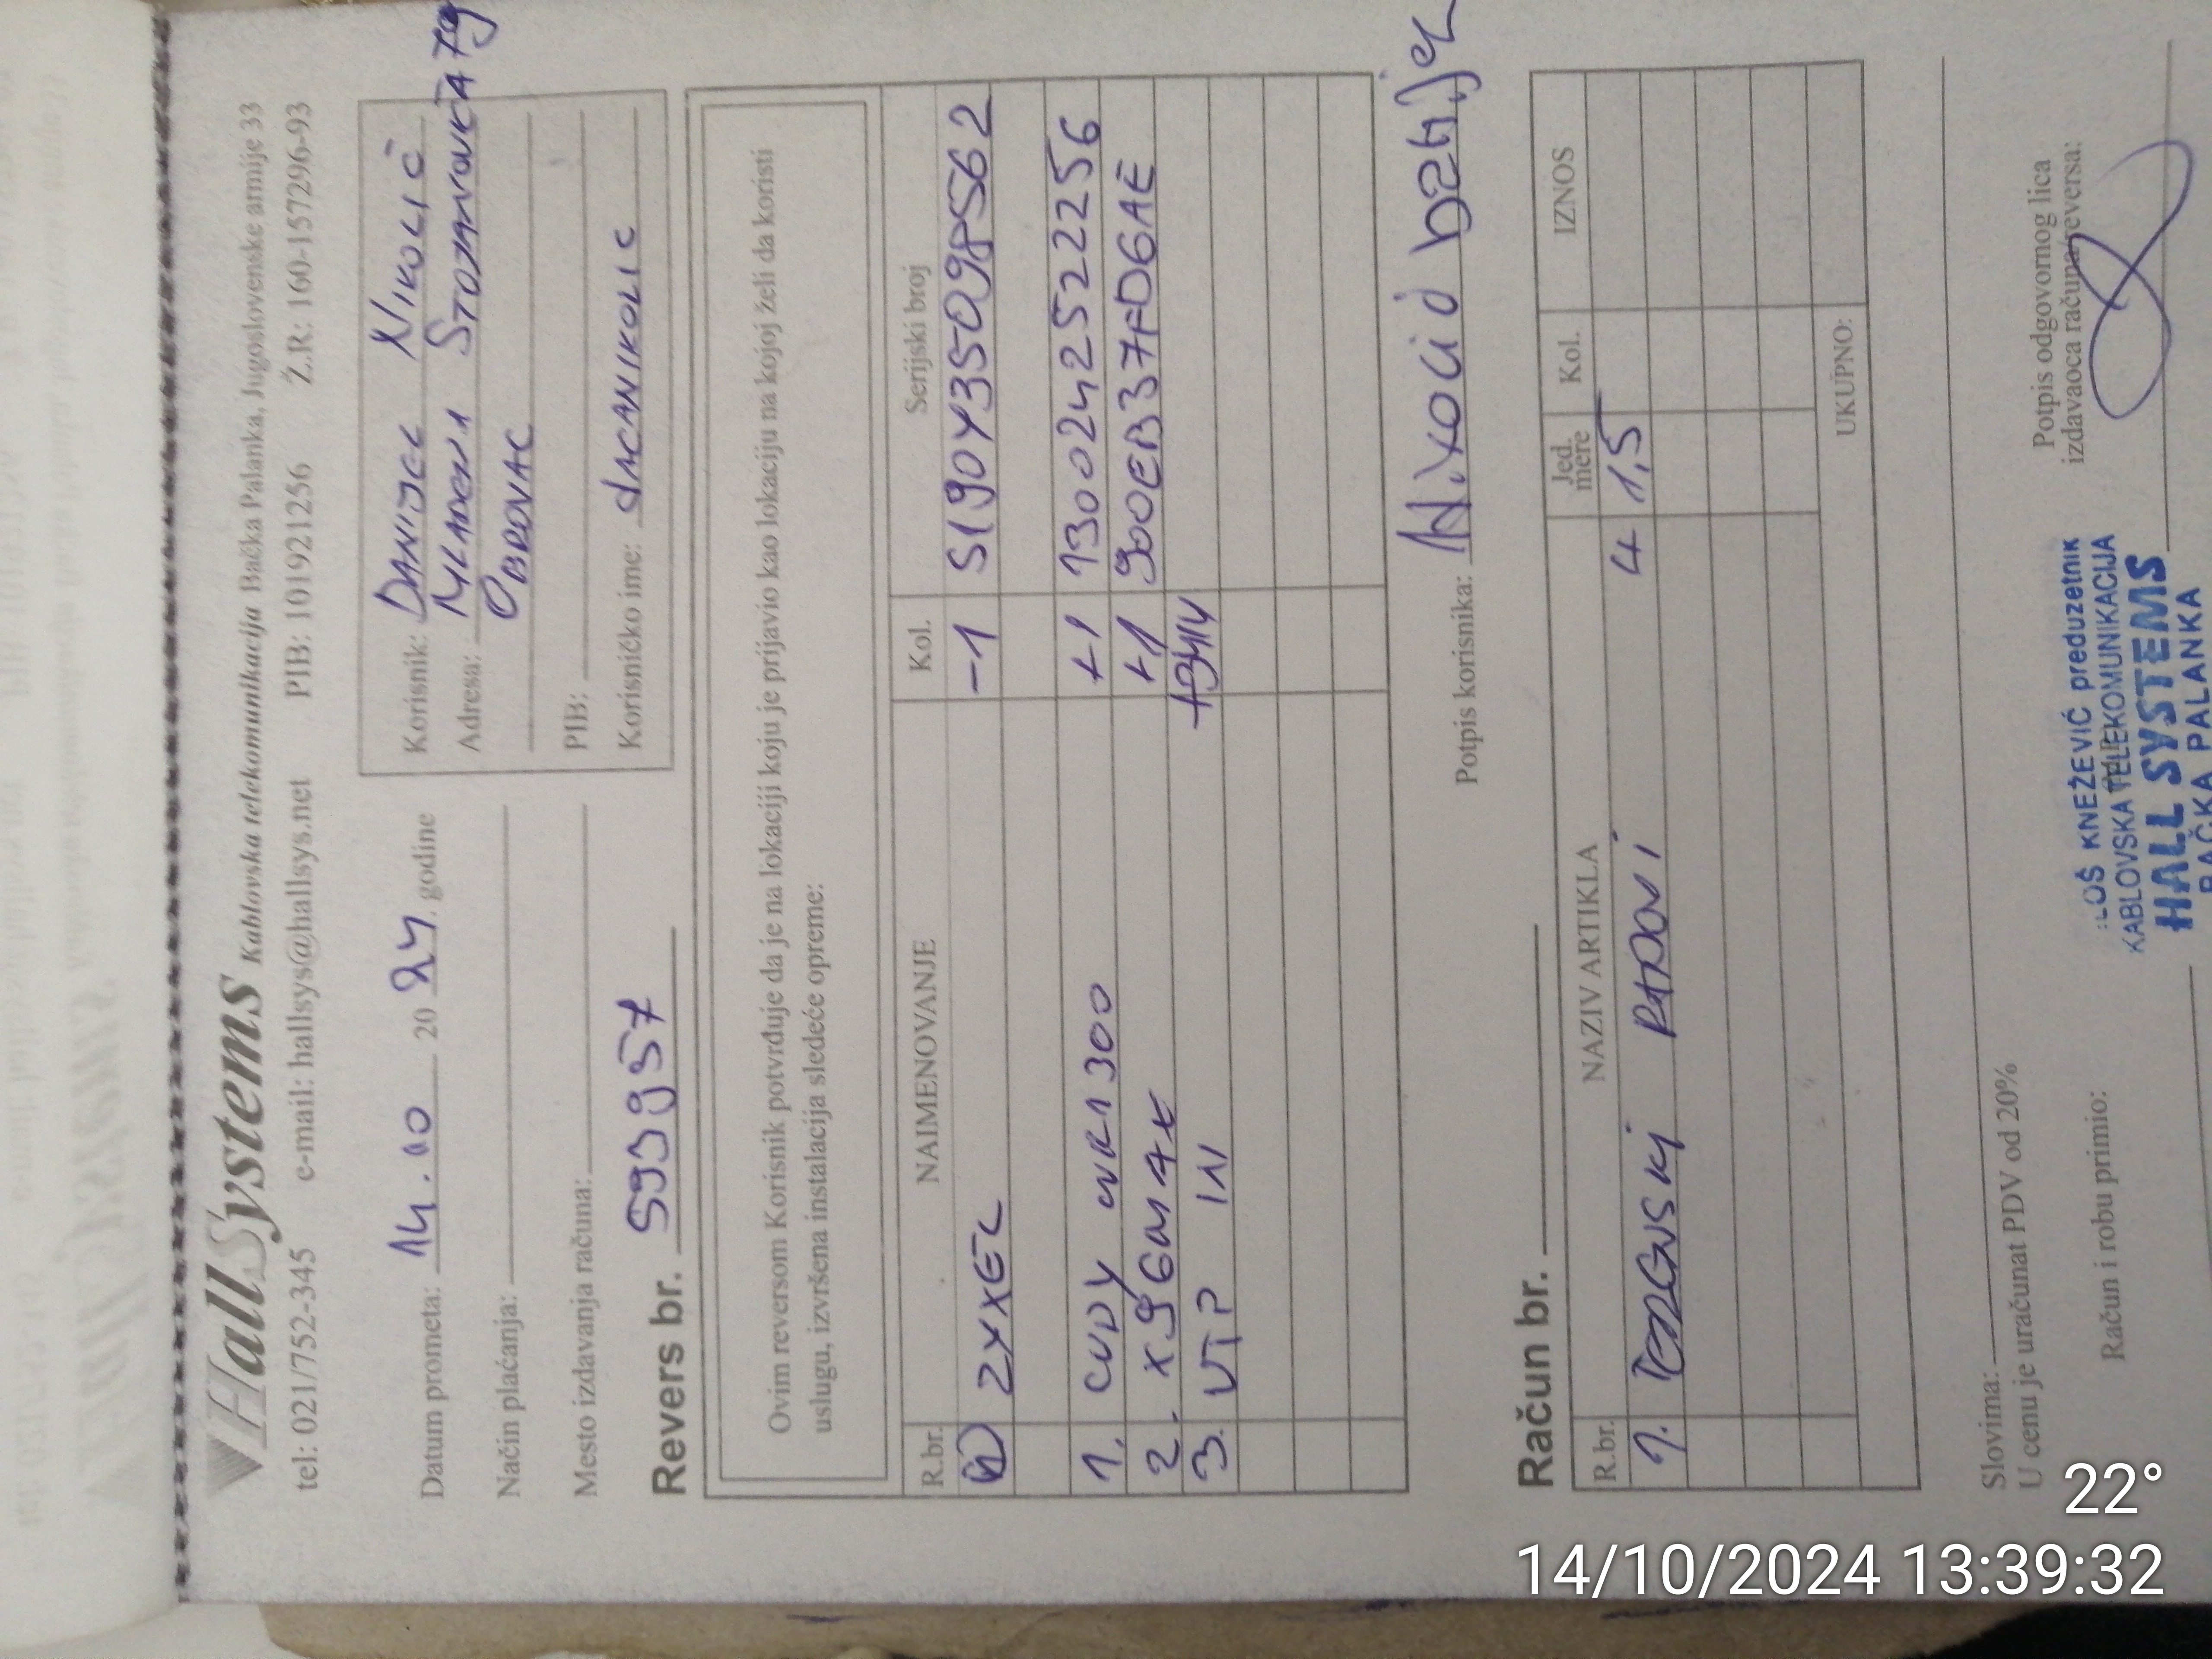 HallSystems Kablovska telekomunikacija Bačka Palanka, Jugoslovenske armije 33
tel: 021/752-345 e-mail: hallsys@hallsys.net PIB: 101921256 Ž.R: 160-157296-93
Datum prometa: 14.10 2024. godine
Način plaćanja:
Mesto izdavanja računa:
Korisnik: DANIJEL NIKOLIĆ
Adresa: MLADENA STOJANOVIĆA 79
OBROVAC
PIB:
Korisničko ime:
Revers br. 593957
Ovim reversom Korisnik potvrđuje da je na lokaciji koju je prijavio kao lokaciju na kojoj želi da koristi
uslugu, izvršena instalacija sledeće opreme:
R.br. NAIMENOVANJE Kol. Serijski broj
ZYXEL -1 S190Y35098562
1. CUDY WR1300 +1 130024252256
2. +1 900EB337FD6AE
3. UTP IN
Potpis korisnika:
Račun br.
R.br. NAZIV ARTIKLA Jed. mere Kol. IZNOS
1. RADOVI 4 1,5
UKUPNO:
Slovima:
U cenu je uračunat PDV od 20%
Račun i robu primio:
Potpis odgovornog lica
izdavaoca računa/reversa:
LOŠ KNEŽEVIĆ preduzetnik
KABLOVSKA TELEKOMUNIKACIJA
HALL SYSTEMS
BAČKA PALANKA
22°
14/10/2024 13:39:32